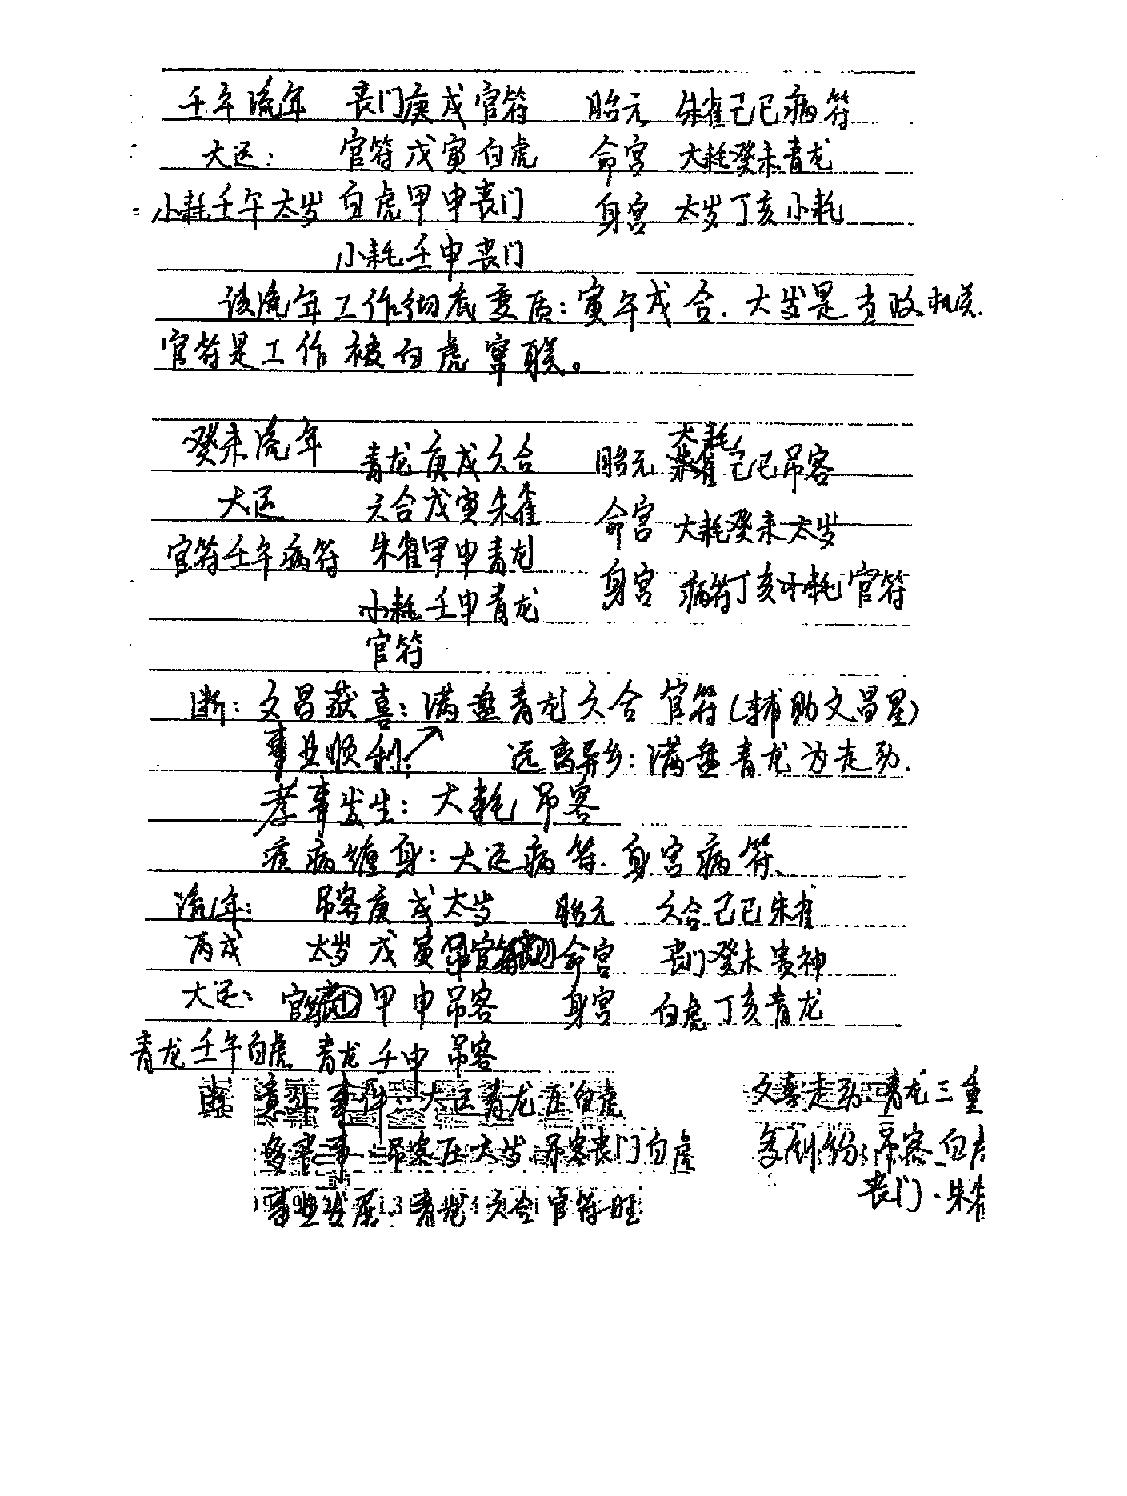 壬午流年 丧门庚戌官符 胎元 朱雀己巳病符
大运: 官符戊寅白虎 命宫 大耗癸未青龙
小耗壬午太岁 白虎甲申丧门 身宫 太岁丁亥小耗
小耗壬申丧门
该流年工作彻底变质:寅午戌合.太岁是负政机关.
官符是工作被白虎牵联。
癸未流年 青龙庚戌六合 胎元 大耗己巳吊客
大运 六合戊寅朱雀 命宫 大耗癸未太岁
官符壬午病符 朱雀甲申青龙 身宫 病符丁亥小耗官符
小耗壬申青龙
官符
断:文昌获喜:满盘青龙六合官符(辅助文昌星)
事业顺利: 远离异乡:满盘青龙为走动.
孝事发生:大耗吊客
疾病缠身:大运病符.身宫病符、
流年: 吊客庚戌太岁 胎元 六合己巳朱雀
丙戌 太岁戊寅官符 命宫 丧门癸未贵神
大运: 官符甲申吊客 身宫 白虎丁亥青龙
青龙壬午白虎 青龙壬申吊客
断 意外事件:大运青龙压白虎 文喜走动:青龙三重
多丧事:吊客压太岁.吊客丧门白虎 多纠纷:吊客.白虎
丧门.朱雀
事业发展.青龙六合官符旺